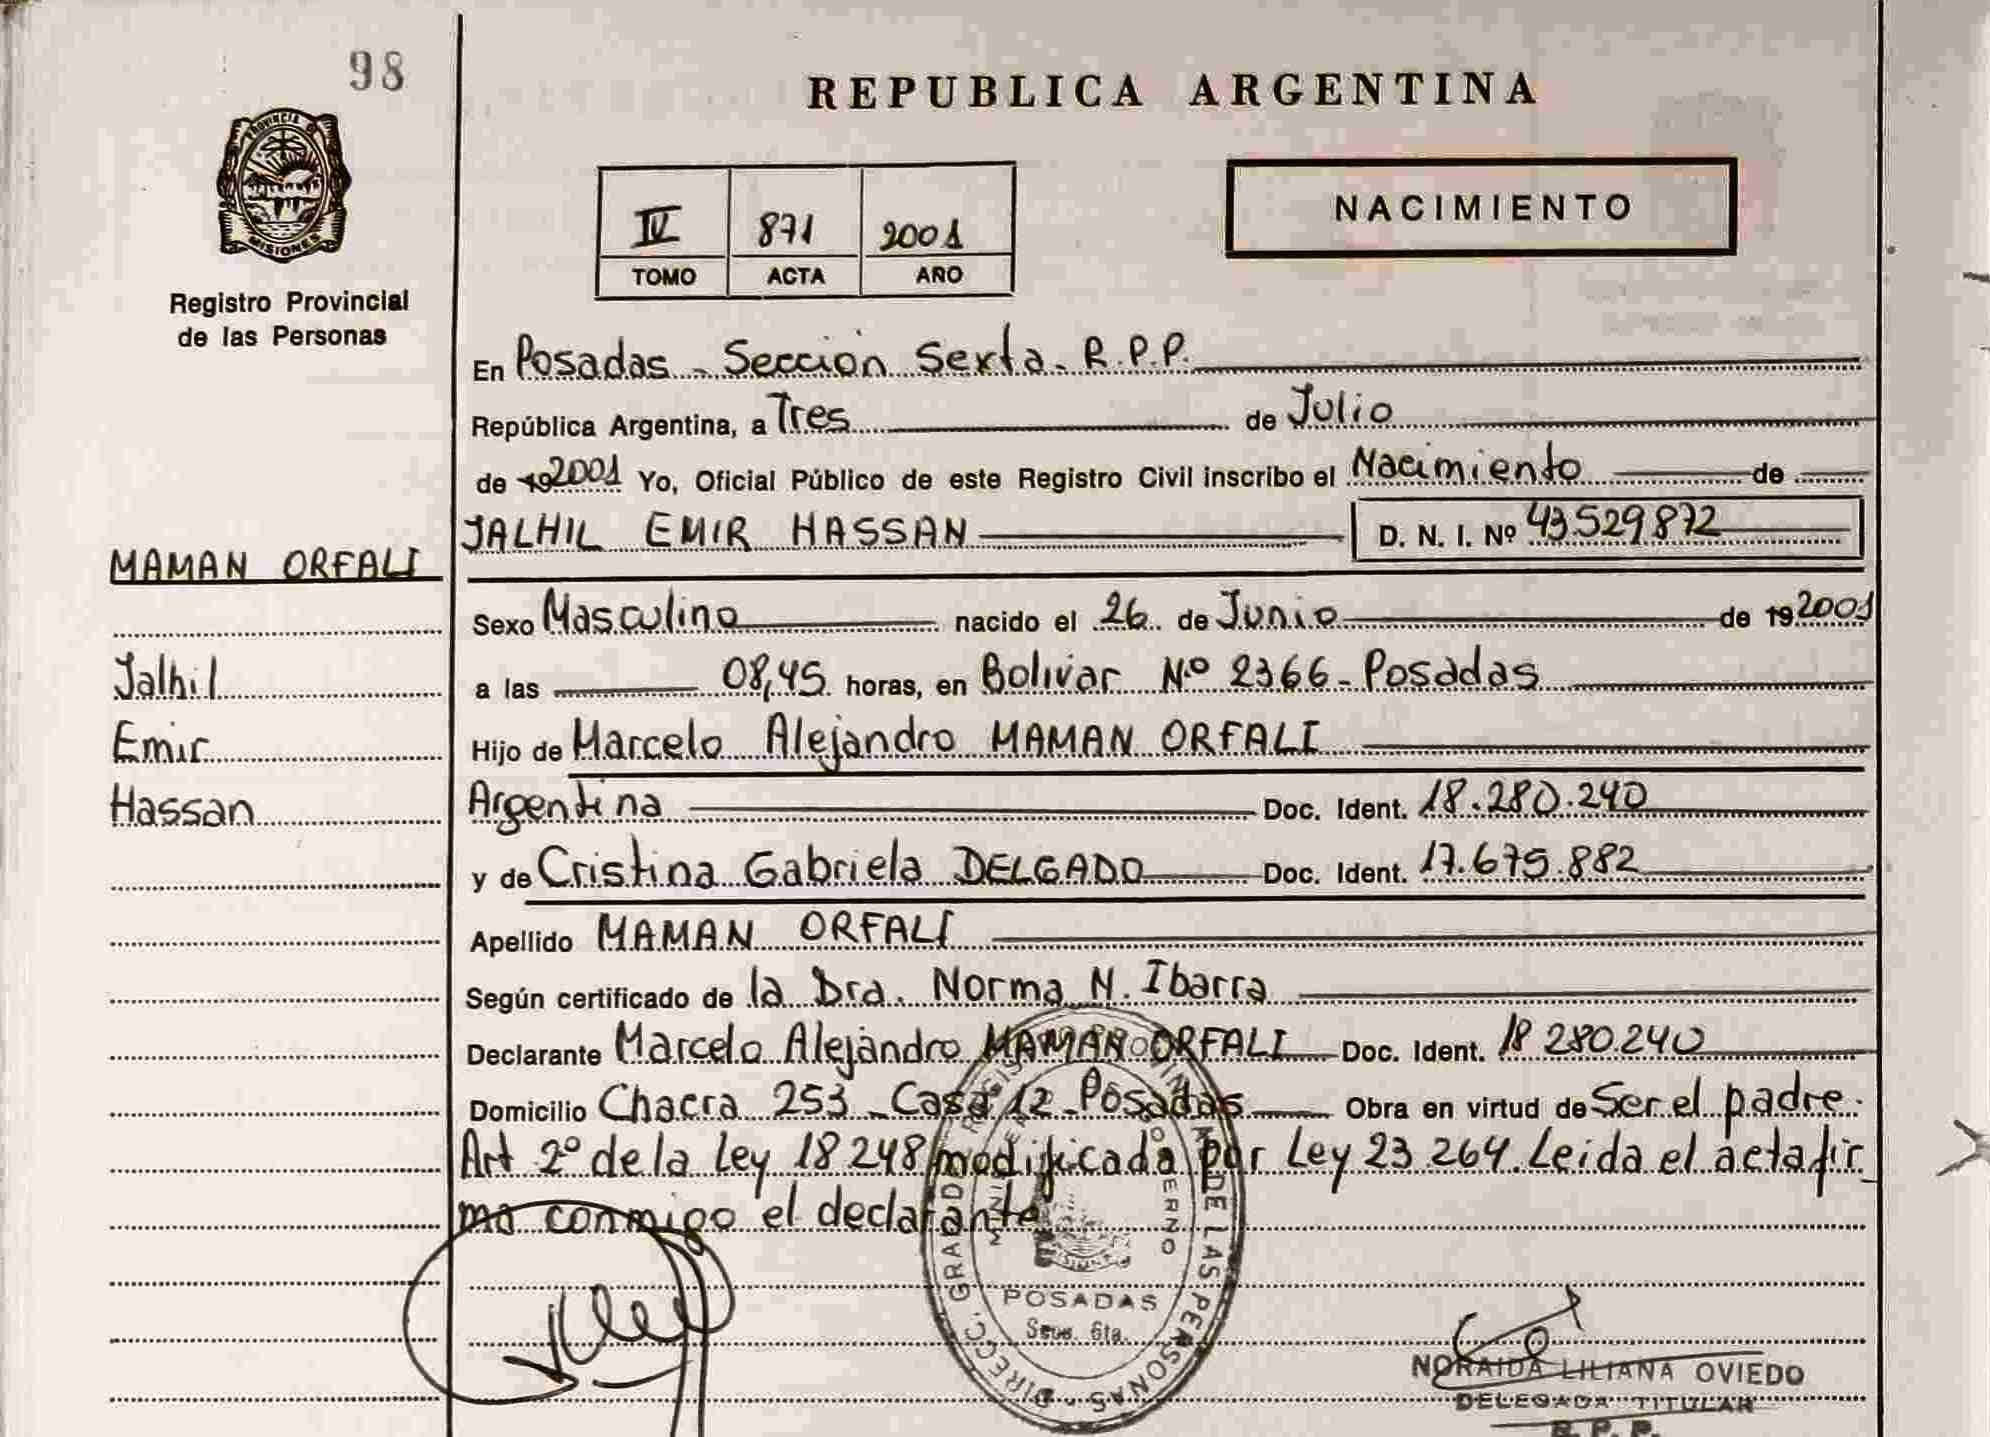 98
REPUBLICA ARGENTINA
PROVINCIA D
MISIONES
Registro Provincial
de las Personas
IV 871 2001
TOMO ACTA AÑO
NACIMIENTO
En Posadas - Sección Sexta - R.P.P.
República Argentina, a Tres de Julio
de 192001 Yo, Oficial Público de este Registro Civil inscribo el Nacimiento de
JALHIL EMIR HASSAN D. N. I. Nº 43.529.872
MAMAN ORFALI
Sexo Masculino nacido el 26 de Junio de 192001
Jalhil
a las 08,45 horas, en Bolivar Nº 2366 - Posadas
Emir
Hijo de Marcelo Alejandro MAMAN ORFALI
Hassan
Argentina Doc. Ident. 18.280.240
y de Cristina Gabriela DELGADO Doc. Ident. 17.675.882
Apellido MAMAN ORFALI
Según certificado de la Dra. Norma N. Ibarra
Declarante Marcelo Alejandro MAMAN ORFALI Doc. Ident. 18 280.240
Domicilio Chacra 253 - Casa 12 - Posadas Obra en virtud de Ser el padre.
Art 2º de la Ley 18 248 modificada por Ley 23 264. Leida el acta fir_
ma conmigo el declarante
POSADAS
Secc. 6ta.
NORAIDA LILIANA OVIEDO
DELEGADA TITULAR
R. P. P.